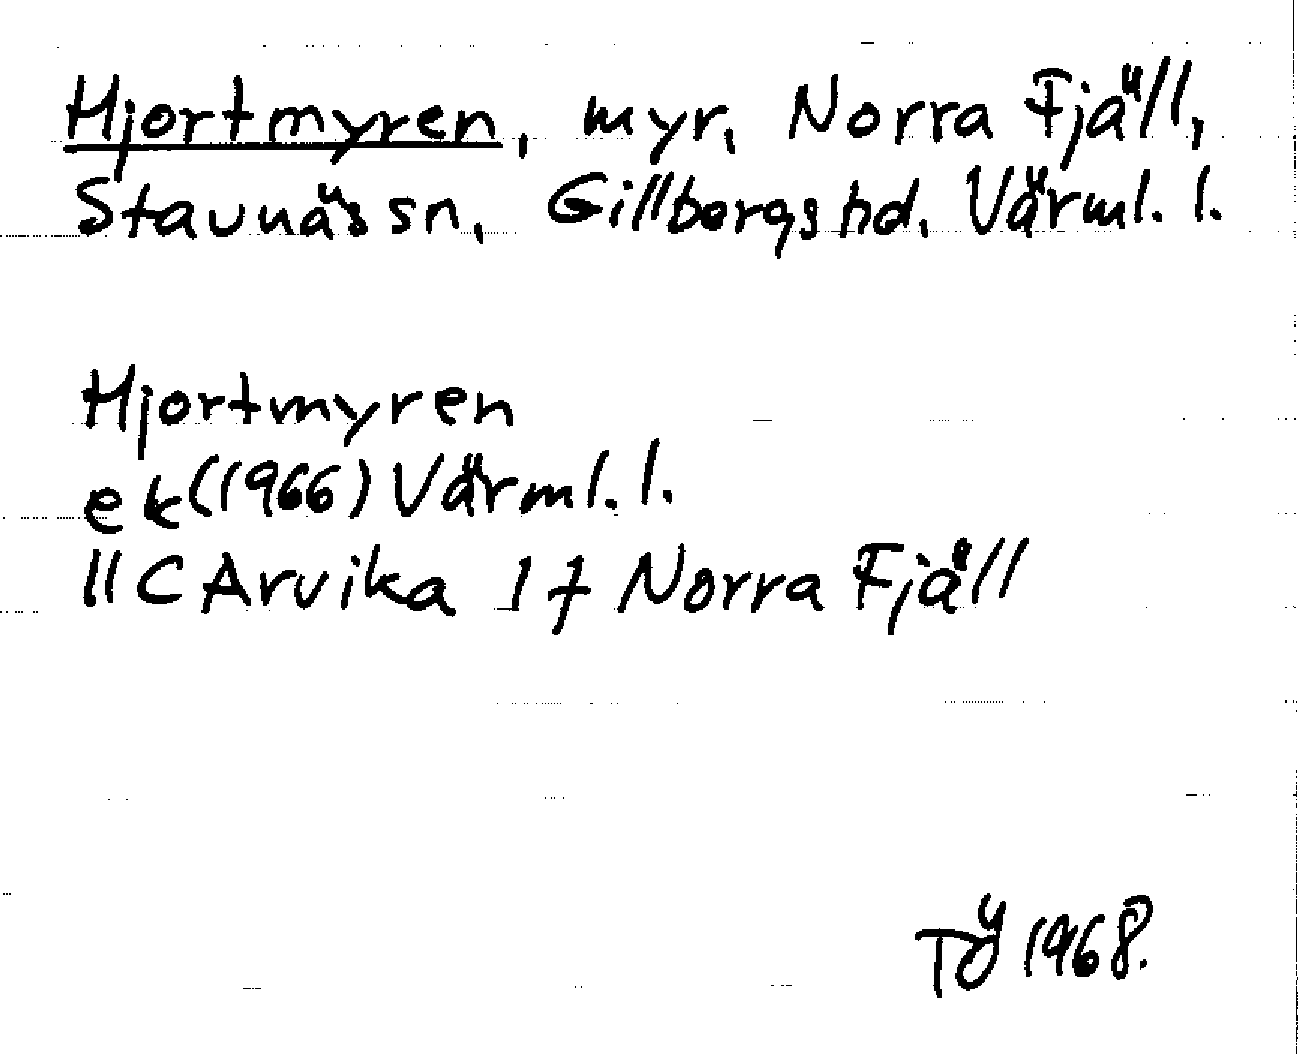 Hjortmyren, myr, Norra Fjäll,
Stavnäs sn, Gillbergs hd. Värml. l.
Hjortmyren
ek (1966) Värml. l.
11C Arvika 1f Norra Fjäll
TÖ 1968.